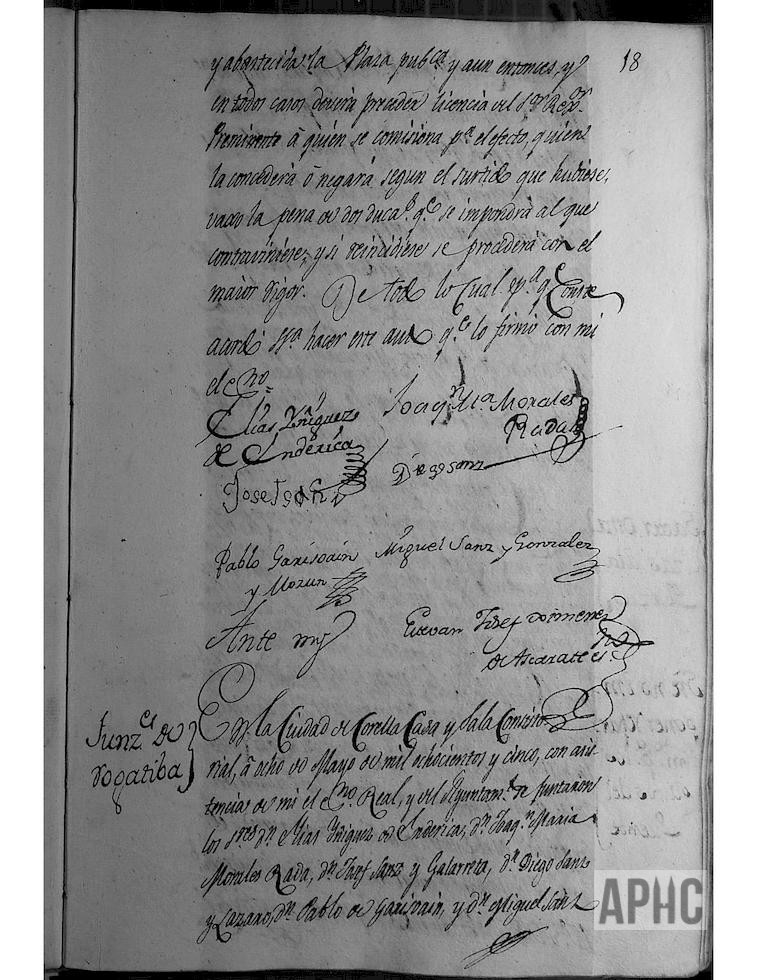 18
y abastecida la Plaza pubca y aun entonces, y
en todos casos deverà preceder licencia del Sor Rexor
Preminente à quien se comisiona pa el efecto, quien
la concederà ò negarà segun el surtido que hubiese,
vajo la pena de dos ducas qe se impondrà al que
contraviniese; y si reincidiese se procederà con el
maior rigor. De todo lo Cual, y pa qe Conste
acordò Sa hacer este auto qe lo firmò con mi
el Eno=
Elias Yñiguez
de Enderica
Joaqn Ma Morales
Rada
Diego Sanz
Pablo Garisoain
y Mozun
Miguel Sanz y Gonzalez
Ante mi
Estevan Josef Ximenez
de Ascarate es.no
Funze de
rogatiba
En la Ciudad de Corella Casa y Sala Consisto
rial, à ocho de Mayo de mil ochocientos y cinco, con asis
tencia de mi el Eno Real, y del Ayuntamto se juntaron
los Sres dn Elias Yñiguez de Enderica, dn Joaqn Maria
Morales Rada, dn Josef Sanz y Galarreta, dn Diego Sanz
y Lazaro, dn Pablo de Garisoain, y dn Miguel Sanz
APHC